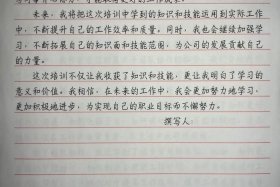 未来，我将把这次培训中学到的知识和技能运用到实际工作
中，不断提升自己的工作效率和质量。同时，我也会继续加强学
习，不断拓展自己的知识面和技能范围，为公司的发展贡献自己
的力量。
这次培训不仅让我收获了知识和技能，更让我明白了学习的
意义和价值。我相信，在未来的工作中，我会更加努力地学习，
更加积极地进步，为实现自己的职业目标而不懈努力。
撰写人：